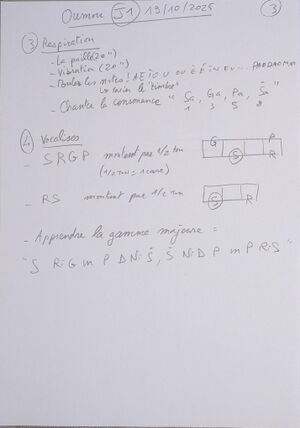 Oumou J1 19/10/2025 3
3 Respiration
- La paille (20")
- Vibration (20")
- Toutes les notes! A E I O U OU É È IN EU
→ varier le "timbre"
- Chanter la consonance " Sa, Ga, Pa, Ṡa "
1 3 5 8
4 Vocalises
- SRGP montant par 1/2 ton
(1/2 ton = 1 case)
G P
S R
- RS montant par 1/2 ton
S R
- Apprendre la gamme majeure =
" S Ri G m P D Ni Ṡ, Ṡ Ni D P m P Ri S "